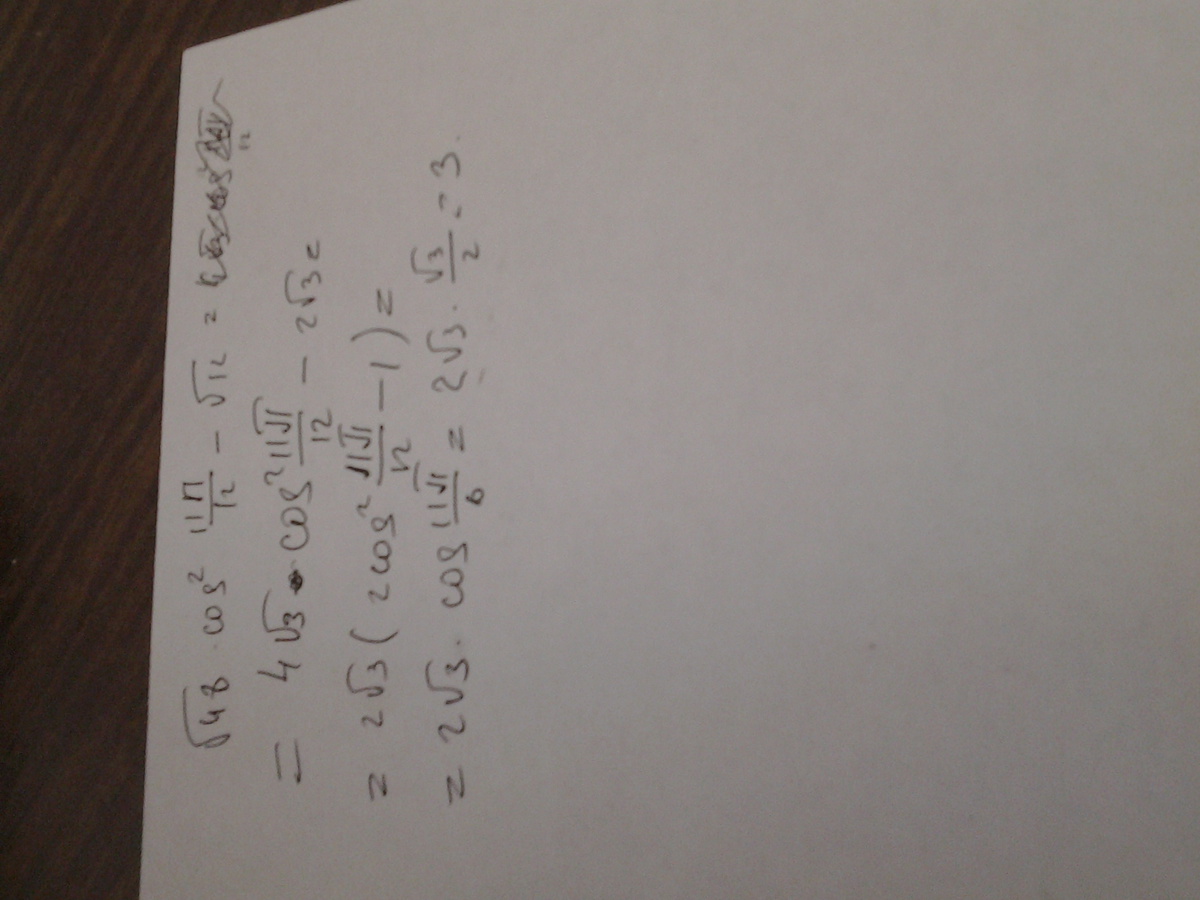 √48 · cos² 11π/12 − √12 =
= 4√3 · cos² 11π/12 − 2√3 =
= 2√3 ( 2cos² 11π/12 − 1 ) =
= 2√3 · cos 11π/6 = 2√3 · √3/2 = 3.